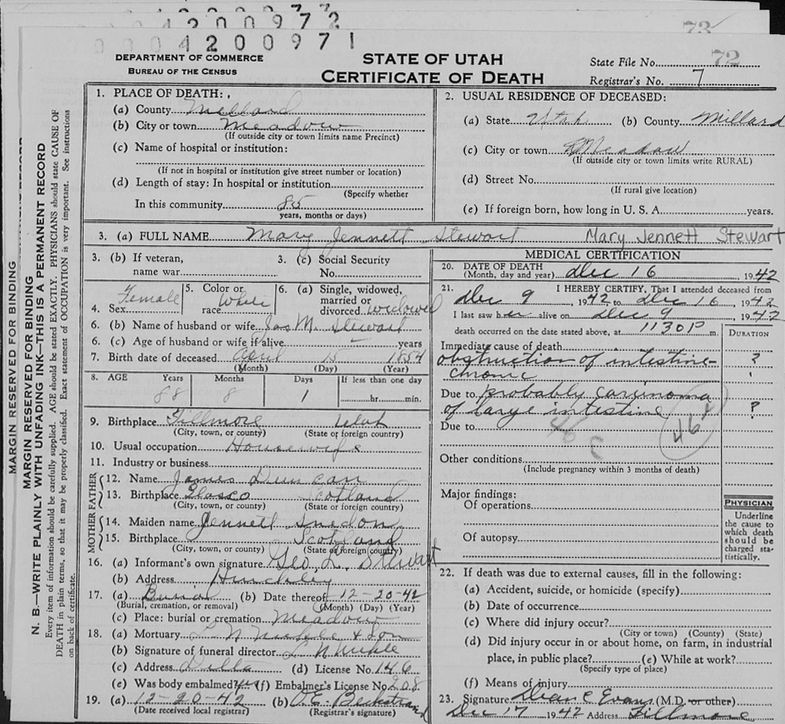 4200972
0004200971
73
72
DEPARTMENT OF COMMERCE
BUREAU OF THE CENSUS
STATE OF UTAH
CERTIFICATE OF DEATH
State File No.
Registrar's No. 7
MARGIN RESERVED FOR BINDING
MARGIN RESERVED FOR BINDING
N. B.—WRITE PLAINLY WITH UNFADING INK—THIS IS A PERMANENT RECORD
Every item of information should be carefully supplied. AGE should be stated EXACTLY. PHYSICIANS should state CAUSE OF
DEATH in plain terms, so that it may be properly classified. Exact statement of OCCUPATION is very important. See instructions
on back of certificate.
1. PLACE OF DEATH:
(a) County Millard
(b) City or town Meadow
(If outside city or town limits name Precinct)
(c) Name of hospital or institution:
(If not in hospital or institution give street number or location)
(d) Length of stay: In hospital or institution
(Specify whether
In this community 85
years, months or days)
2. USUAL RESIDENCE OF DECEASED:
(a) State Utah (b) County Millard
(c) City or town Meadow
(If outside city or town limits write RURAL)
(d) Street No.
(If rural give location)
(e) If foreign born, how long in U. S. A. years.
3. (a) FULL NAME Mary Jennett Stewart Mary Jennett Stewart
3. (b) If veteran, name war
3. (c) Social Security No.
4. Sex Female
5. Color or race White
6. (a) Single, widowed, married or divorced widowed
6. (b) Name of husband or wife Jas M. Stewart
6. (c) Age of husband or wife if alive - years
7. Birth date of deceased April 15 1854
(Month) (Day) (Year)
8. AGE Years Months Days If less than one day
88 8 1 hr. min.
9. Birthplace Fillmore Utah
(City, town, or county) (State or foreign country)
10. Usual occupation Housewife
11. Industry or business
FATHER
12. Name James Duncan
13. Birthplace Glasco Scotland
(City, town, or county) (State or foreign country)
MOTHER
14. Maiden name Jennett
15. Birthplace Scotland
(City, town, or county) (State or foreign country)
16. (a) Informant's own signature Geo. L. Stewart
(b) Address Hinckley
17. (a) Burial (b) Date thereof 12-20-42
(Burial, cremation, or removal) (Month) (Day) (Year)
(c) Place: burial or cremation Meadow
18. (a) Mortuary & Son
(b) Signature of funeral director
(c) Address Delta (d) License No. 146
(e) Was body embalmed? (f) Embalmer's License No. 208
19. (a) 12-20-42 (b)
(Date received local registrar) (Registrar's signature)
MEDICAL CERTIFICATION
20. DATE OF DEATH
(Month, day and year) Dec 16, 1942
21. I HEREBY CERTIFY, That I attended deceased from
Dec 9, 1942 to Dec 16, 1942
I last saw her alive on Dec 9, 1942
death occurred on the date stated above, at 1130P m.
DURATION
Immediate cause of death
obstruction of intestine ?
chronic
Due to probably carcinoma
of large intestine ?
Due to
46
Other conditions
(Include pregnancy within 3 months of death)
Major findings:
Of operations
Of autopsy
PHYSICIAN
Underline
the cause to
which death
should be
charged sta-
tistically.
22. If death was due to external causes, fill in the following:
(a) Accident, suicide, or homicide (specify)
(b) Date of occurrence
(c) Where did injury occur?
(City or town) (County) (State)
(d) Did injury occur in or about home, on farm, in industrial
place, in public place? (e) While at work?
(Specify type of place)
(f) Means of injury
23. Signature Dean C Evans (M.D. or other)
Dec 17 1942 Address Fillmore